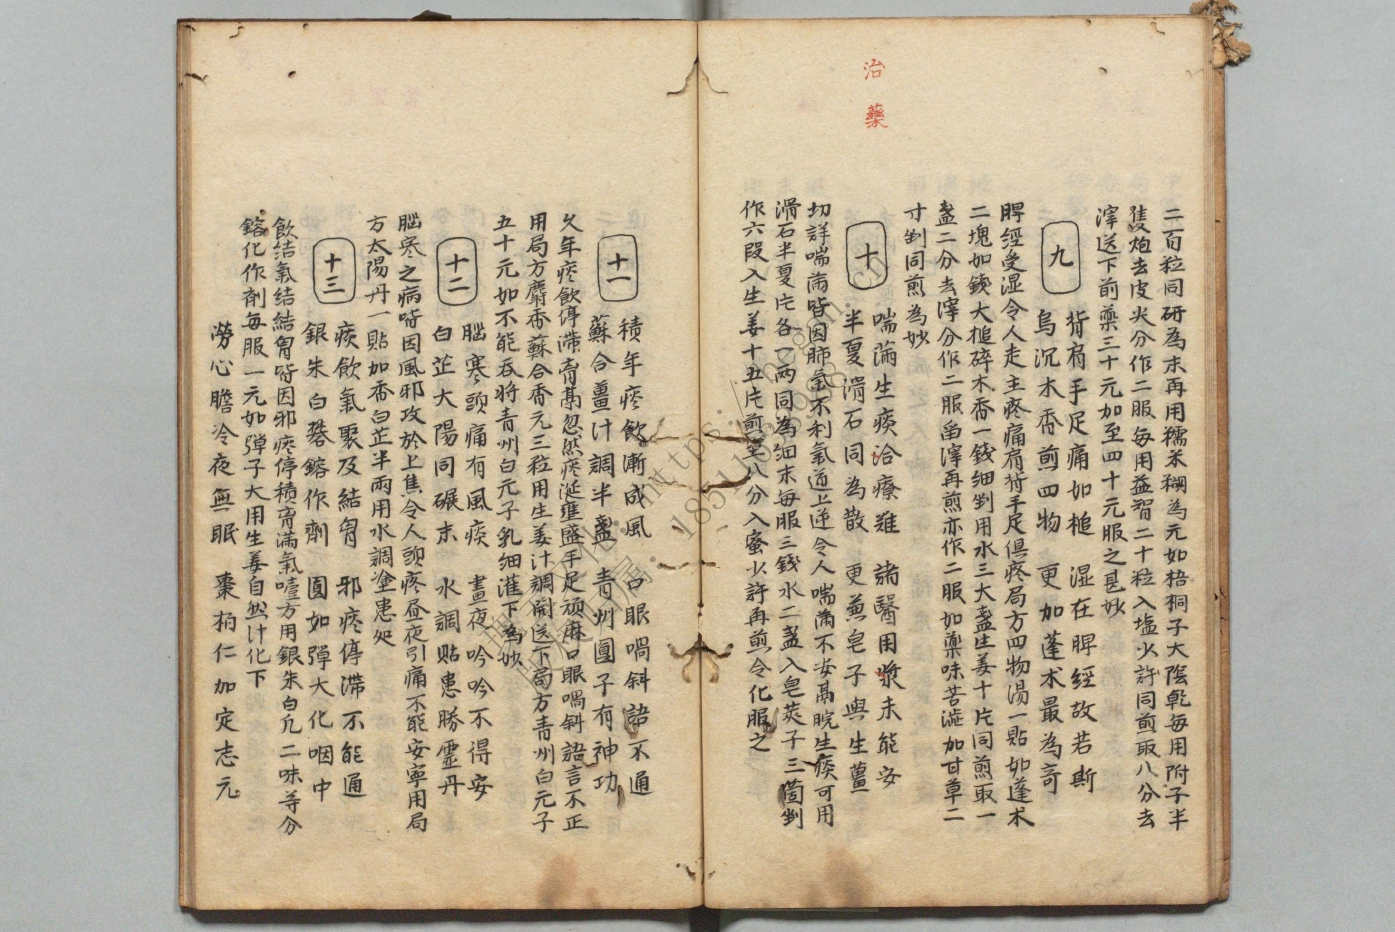 治藥
二百粒同研為末再用糯米糊為元如梧桐子大陰乾每用附子半
隻炮去皮尖分作二服每用益智二十粒入塩少許同煎取八分去
滓送下前藥三十元加至四十元服之甚妙
九
背肩手足痛如槌 湿在脾經故若斯
烏沉木香煎四物 更加蓬朮最為奇
脾經受湿令人走主疼痛肩背手足俱疼局方四物湯一貼如蓬朮
二塊如錢大槌碎木香一錢細剉用水三大盞生姜十片同煎取一
盞二分去滓分作二服畱滓再煎亦作二服如藥味苦澁加甘草二
寸剉同煎為妙
十
喘滿生痰治療難 諸醫用藥未能安
半夏滑石同為散 更兼皂子與生薑
切詳喘滿皆因肺氣不利氣道上逆令人喘滿不安萵脘生痰可用
滑石半夏片各一两同為細末每服三錢水二盞入皂莢子三箇剉
作六段入生姜十五片煎至八分入蜜少許再煎令化服之
十一
積年痰飲漸成風 口眼喎斜語不通
蘇合薑汁調半盞 青州圓子有神功
久年痰飲停滯膏萵忽然痰涎壅盛手足頑麻口眼喎斜語言不正
用局方麝香蘇合香元三粒用生姜汁調開送下局方青州白元子
五十元如不能吞將青州白元子乳細灌下為妙
十二
腦寒頭痛有風痰 晝夜吟吟不得安
白芷大陽同碾末 水調貼患勝靈丹
腦寒之病皆因風邪攻於上焦令人頭疼昼夜引痛不能安寧用局
方太陽丹一貼加香白芷半兩用水調塗患処
十三
痰飲氣聚及結胷 邪痰停滯不能通
銀朱白礬鎔作劑 圓如彈大化咽中
飲結氣結結胷皆因邪痰停積膏滿氣噎方用銀朱白凡二味等分
鎔化作劑每服一元如弹子大用生姜自然汁化下
勞心膽冷夜無眠 棗栢仁加定志元